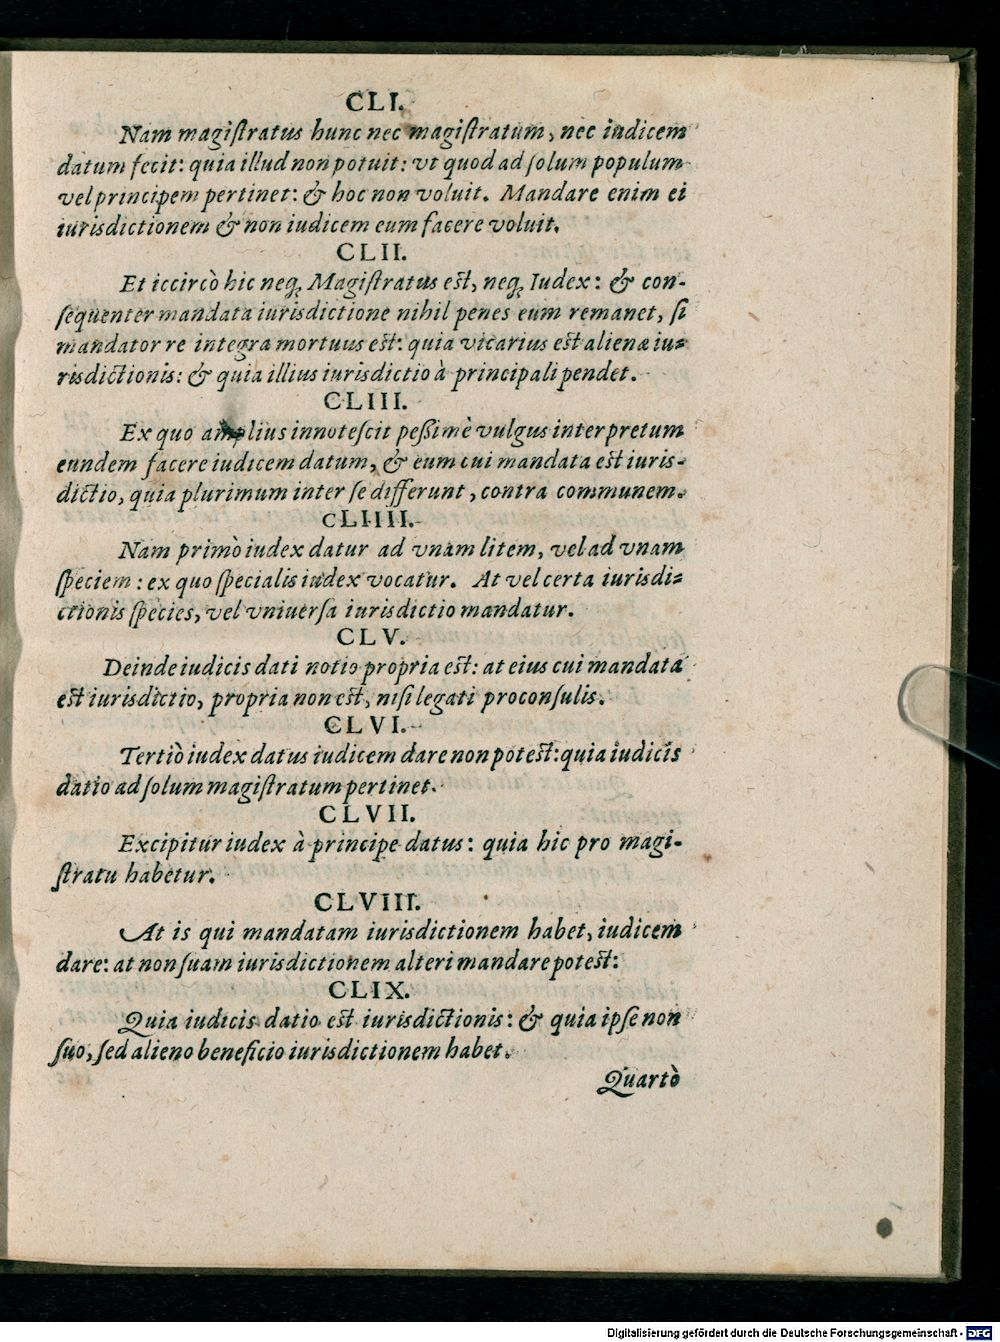 CLI.
Nam magiſtratus hunc nec magiſtratum, nec iudicem
datum fecit: quia illud non potuit: vt quod ad ſolum populum
vel principem pertinet: & hoc non voluit. Mandare enim ei
iurisdictionem & non iudicem eum facere voluit.
CLII.
Et iccircò hic neq; Magiſtratus est, neq; Iudex: & con-
ſequenter mandata iurisdictione nihil penes eum remanet, ſi
mandator re integra mortuus est: quia vicarius est alienæ iu-
risdictionis: & quia illius iurisdictio à principali pendet.
CLIII.
Ex quo amplius innoteſcit peſsimè vulgus interpretum
eundem facere iudicem datum, & eum cui mandata est iuris-
dictio, quia plurimum inter ſe differunt, contra communem.
CLIIII.
Nam primò iudex datur ad vnam litem, vel ad vnam
ſpeciem: ex quo ſpecialis iudex vocatur. At vel certa iurisdi-
ctionis ſpecies, vel vniuerſa iurisdictio mandatur.
CLV.
Deinde iudicis dati notio propria est: at eius cui mandata
est iurisdictio, propria non est, niſi legati proconſulis.
CLVI.
Tertiò iudex datus iudicem dare non potest: quia iudicis
datio ad ſolum magiſtratum pertinet.
CLVII.
Excipitur iudex à principe datus: quia hic pro magi-
ſtratu habetur.
CLVIII.
At is qui mandatam iurisdictionem habet, iudicem
dare: at non ſuam iurisdictionem alteri mandare potest:
CLIX.
Quia iudicis datio est iurisdictionis: & quia ipſe non
ſuo, ſed alieno beneficio iurisdictionem habet.
Quartò
Digitalisierung gefördert durch die Deutsche Forschungsgemeinschaft - DFG